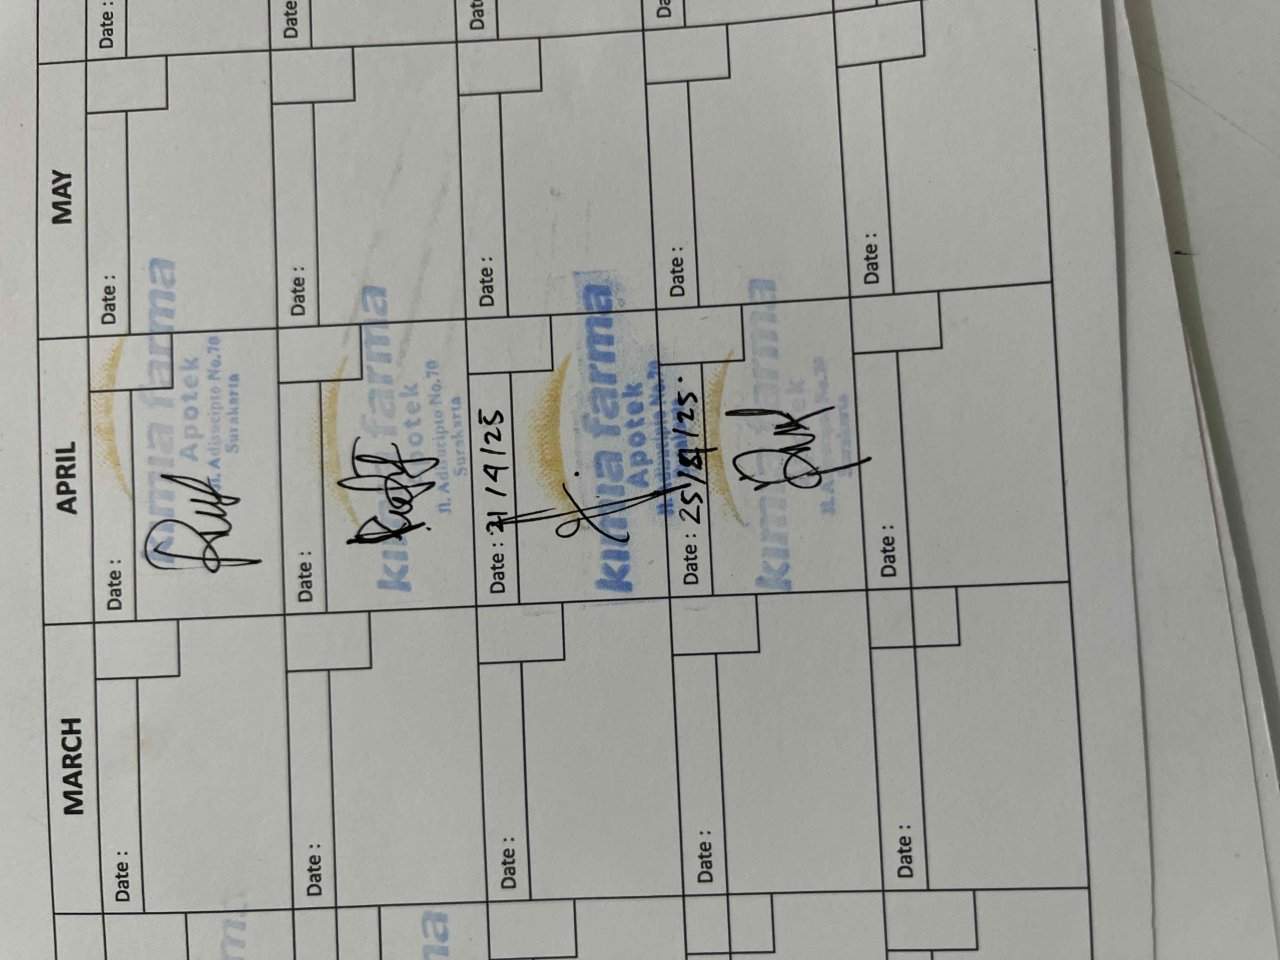 MARCH APRIL MAY
Date : Date : Date : Date :
kimia farma
Apotek
Jl. Adisucipto No.70
Surakarta
Date : Date : Date : Date
farma
Apotek
Jl. Adisucipto No.70
Surakarta
Date : Date : 21/4/25 Date : Dat
kimia farma
Apotek
Jl. Adisucipto No.70
Date : Date : 25/4/25. Date : Da
kimia farma
Date : Date : Date :